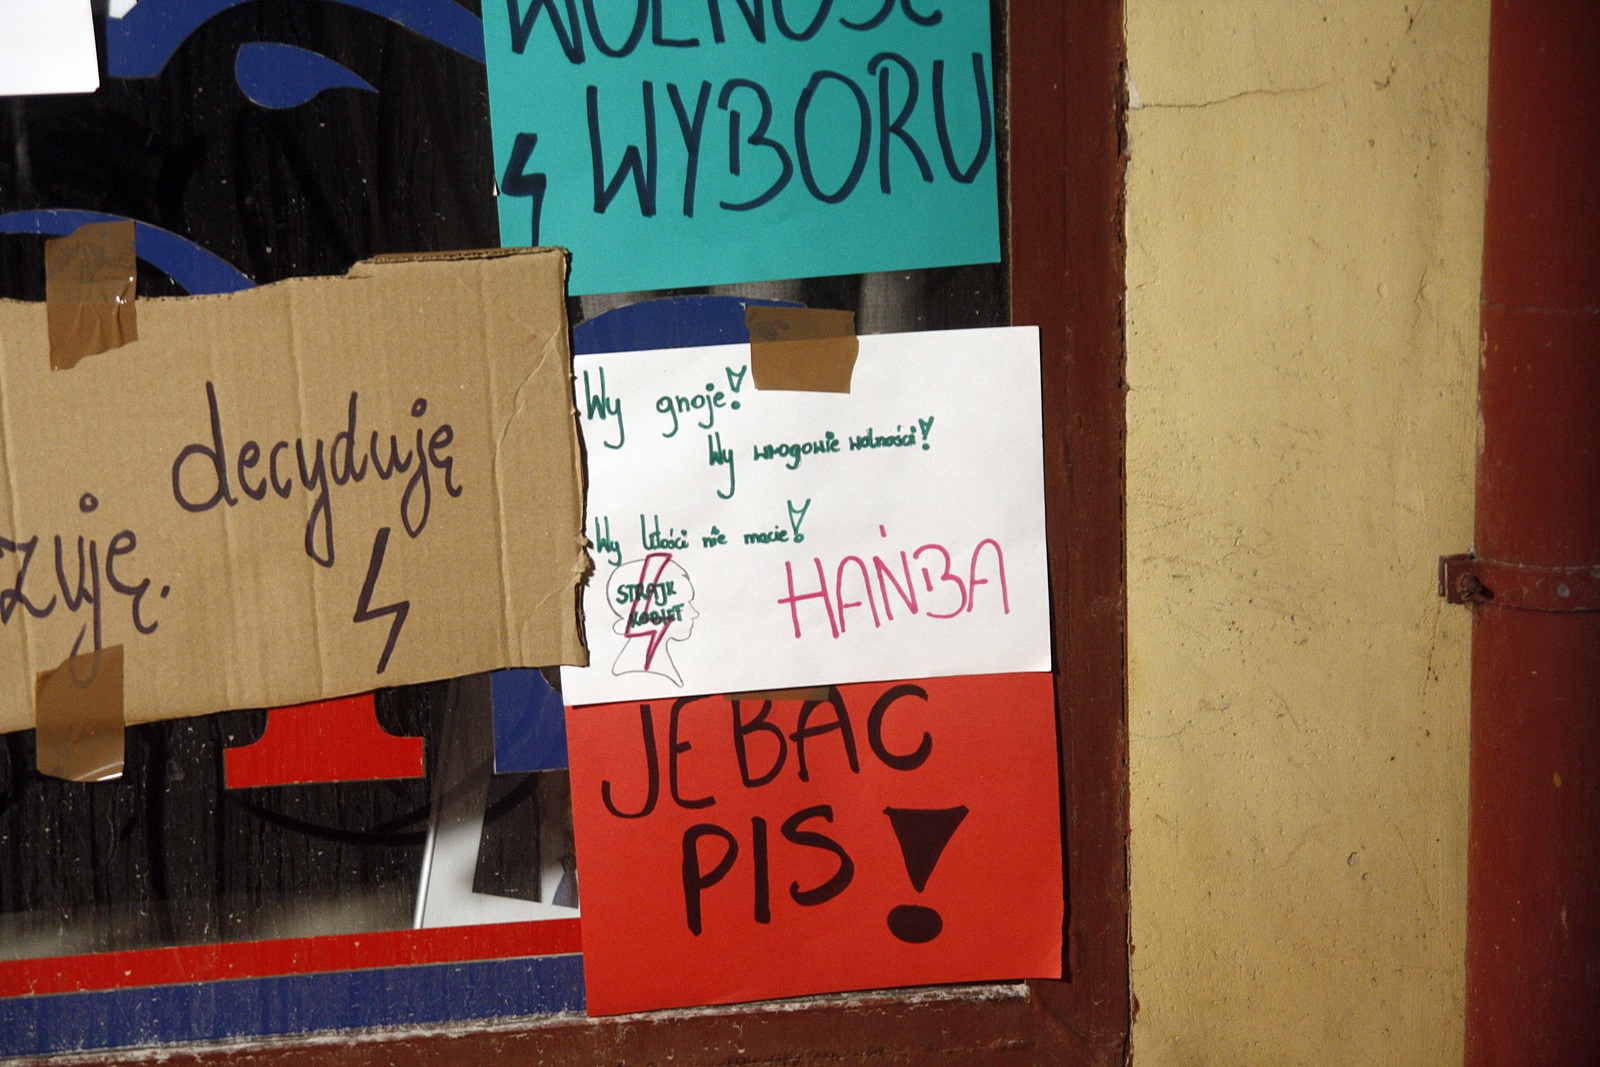 WOLNOŚĆ
WYBORU
decyduję
zuję.
Wy gnoje!
Wy wrogowie wolności!
Wy litości nie macie!
STRAJK
KOBIET
HAŃBA
JEBAC
PIS!